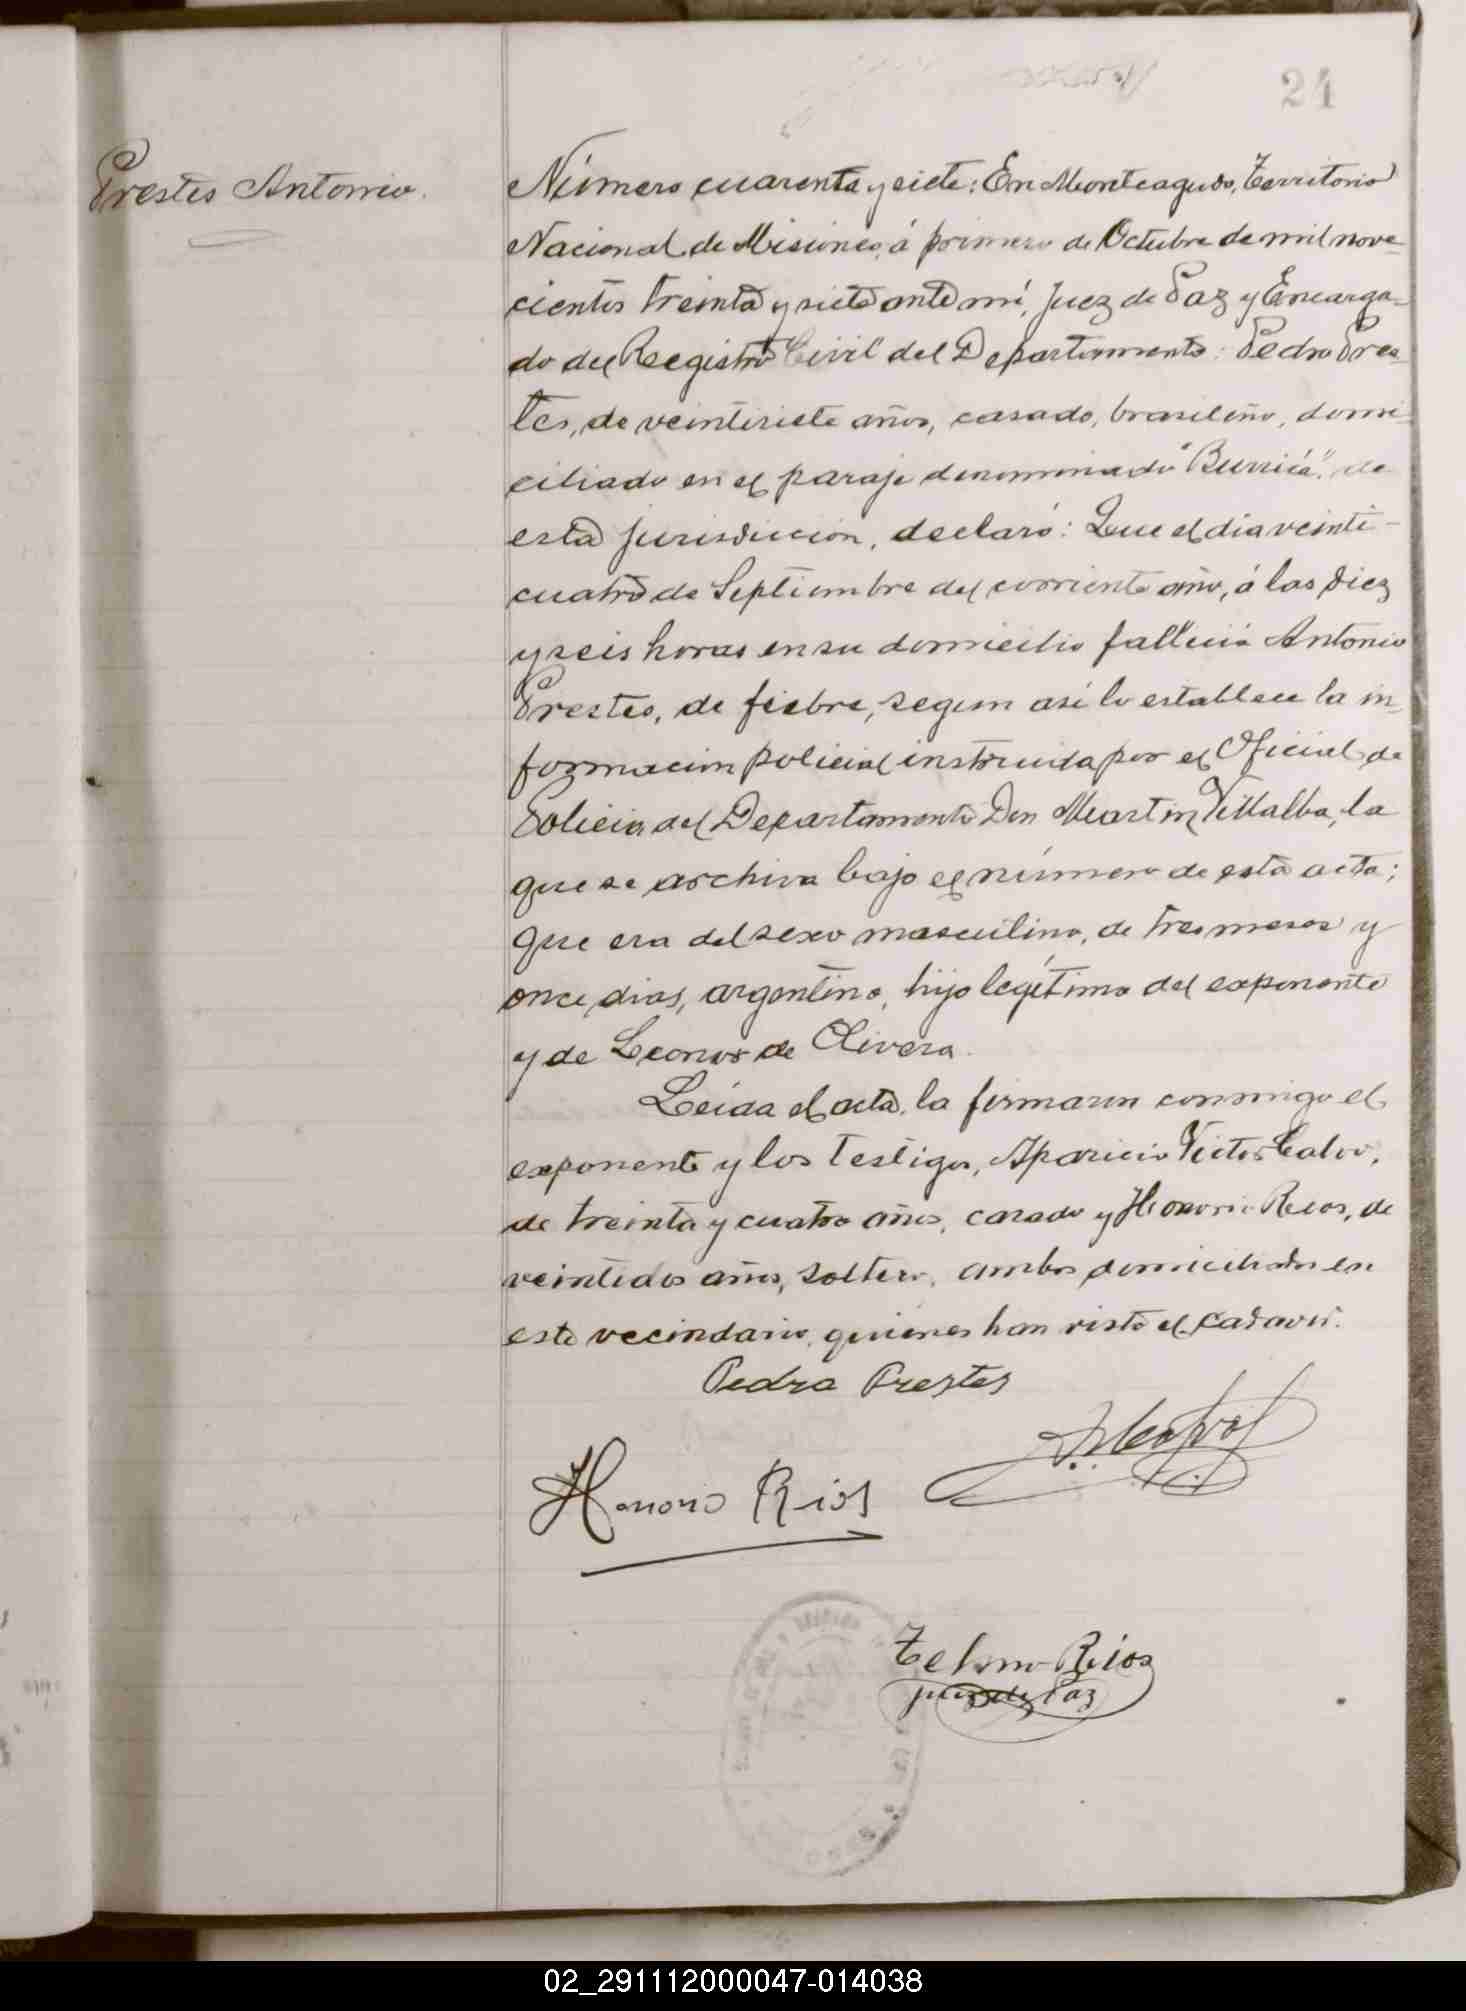 24
Prestes Antonio.
Número cuarenta y siete: En Monteagudo, Territorio
Nacional de Misiones, á primero de Octubre de mil nove-
cientos treinta y siete ante mí, Juez de Paz y Encarga-
do del Registro Civil del Departamento: Pedro Pres-
tes, de veintisiete años, casado, brasileño, domi-
ciliado en el paraje denominado "Burricá" de
esta jurisdicción, declaró: Que el día veinti-
cuatro de Septiembre del corriente año, á las diez
y seis horas en su domicilio falleció Antonio
Prestes, de fiebre, segun así lo establece la in-
formacion policial instruida por el Oficial de
Policia del Departamento Don Martin Villalba, la
que se archiva bajo el número de esta acta;
que era del sexo masculino, de tres meses y
once dias, argentino, hijo legítimo del exponente
y de Leonor de Olivera.
Leída el acta, la firmaron conmigo el
exponente y los testigos, Aparicio Victor Calvo,
de treinta y cuatro años, casado y Honorio Rios, de
veintidos años, soltero, ambos domiciliados en
este vecindario, quienes han visto el cadaver.
Pedro Prestes
Honorio Rios
Telmo Rios
Juez de Paz
02_291112000047-014038